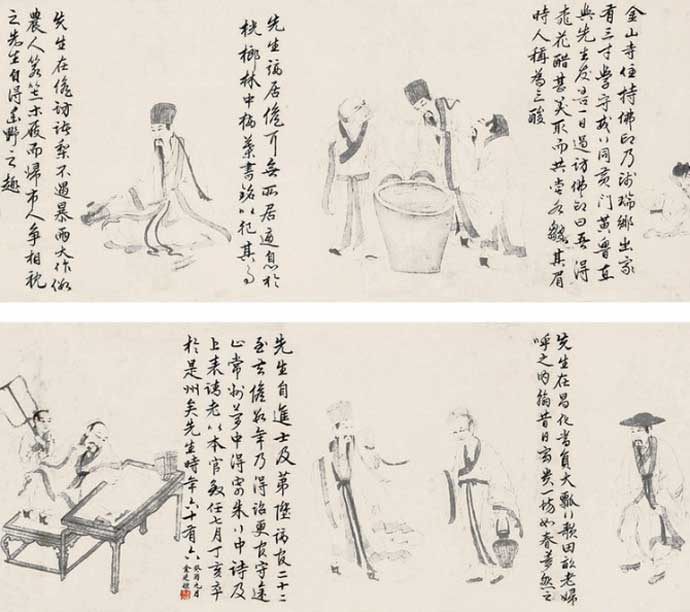 金山寺住持佛印乃瑞鄉出家
有三寸學守戒同黃門黃魯直
與先生友善一日過訪佛印曰吾得
桃花醋甚美取而共嘗各皺其眉
時人稱為三酸
先生謫居儋耳無所居適息於
桄榔林中摘葉書銘以記其事
先生在儋訪諸黎不遇暴雨大作假
農人箬笠木屐而歸市人爭相視
之先生自得野之趣
先生在昌化嘗負大瓢行歌田畝老婦
呼之內翰昔日富貴一場如春夢然之
先生自進士及第歷謫官二十二
至去儋數年乃得詔更官守
止常州夢中得寄朱行中詩及
上表請老以本官致任七月丁亥卒
於是州矣先生時年六十有六
癸酉九月